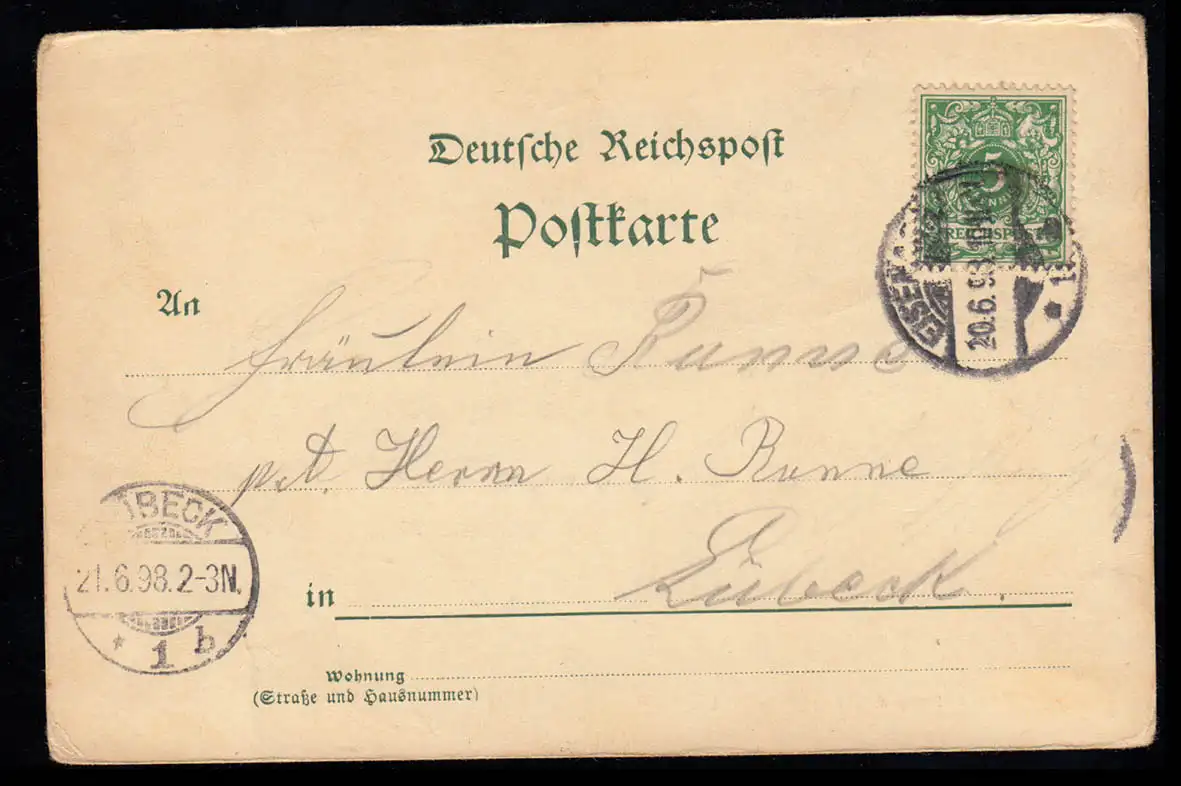 Deutsche Reichspost
Postkarte
5
REICHSPOST
20.6.98.
1
An
Fräulein Runne
p. A. Herrn H. Runne
LÜBECK
21.6.98.2-3N.
* 1 b
in Lübeck.
Wohnung
(Straße und Hausnummer)